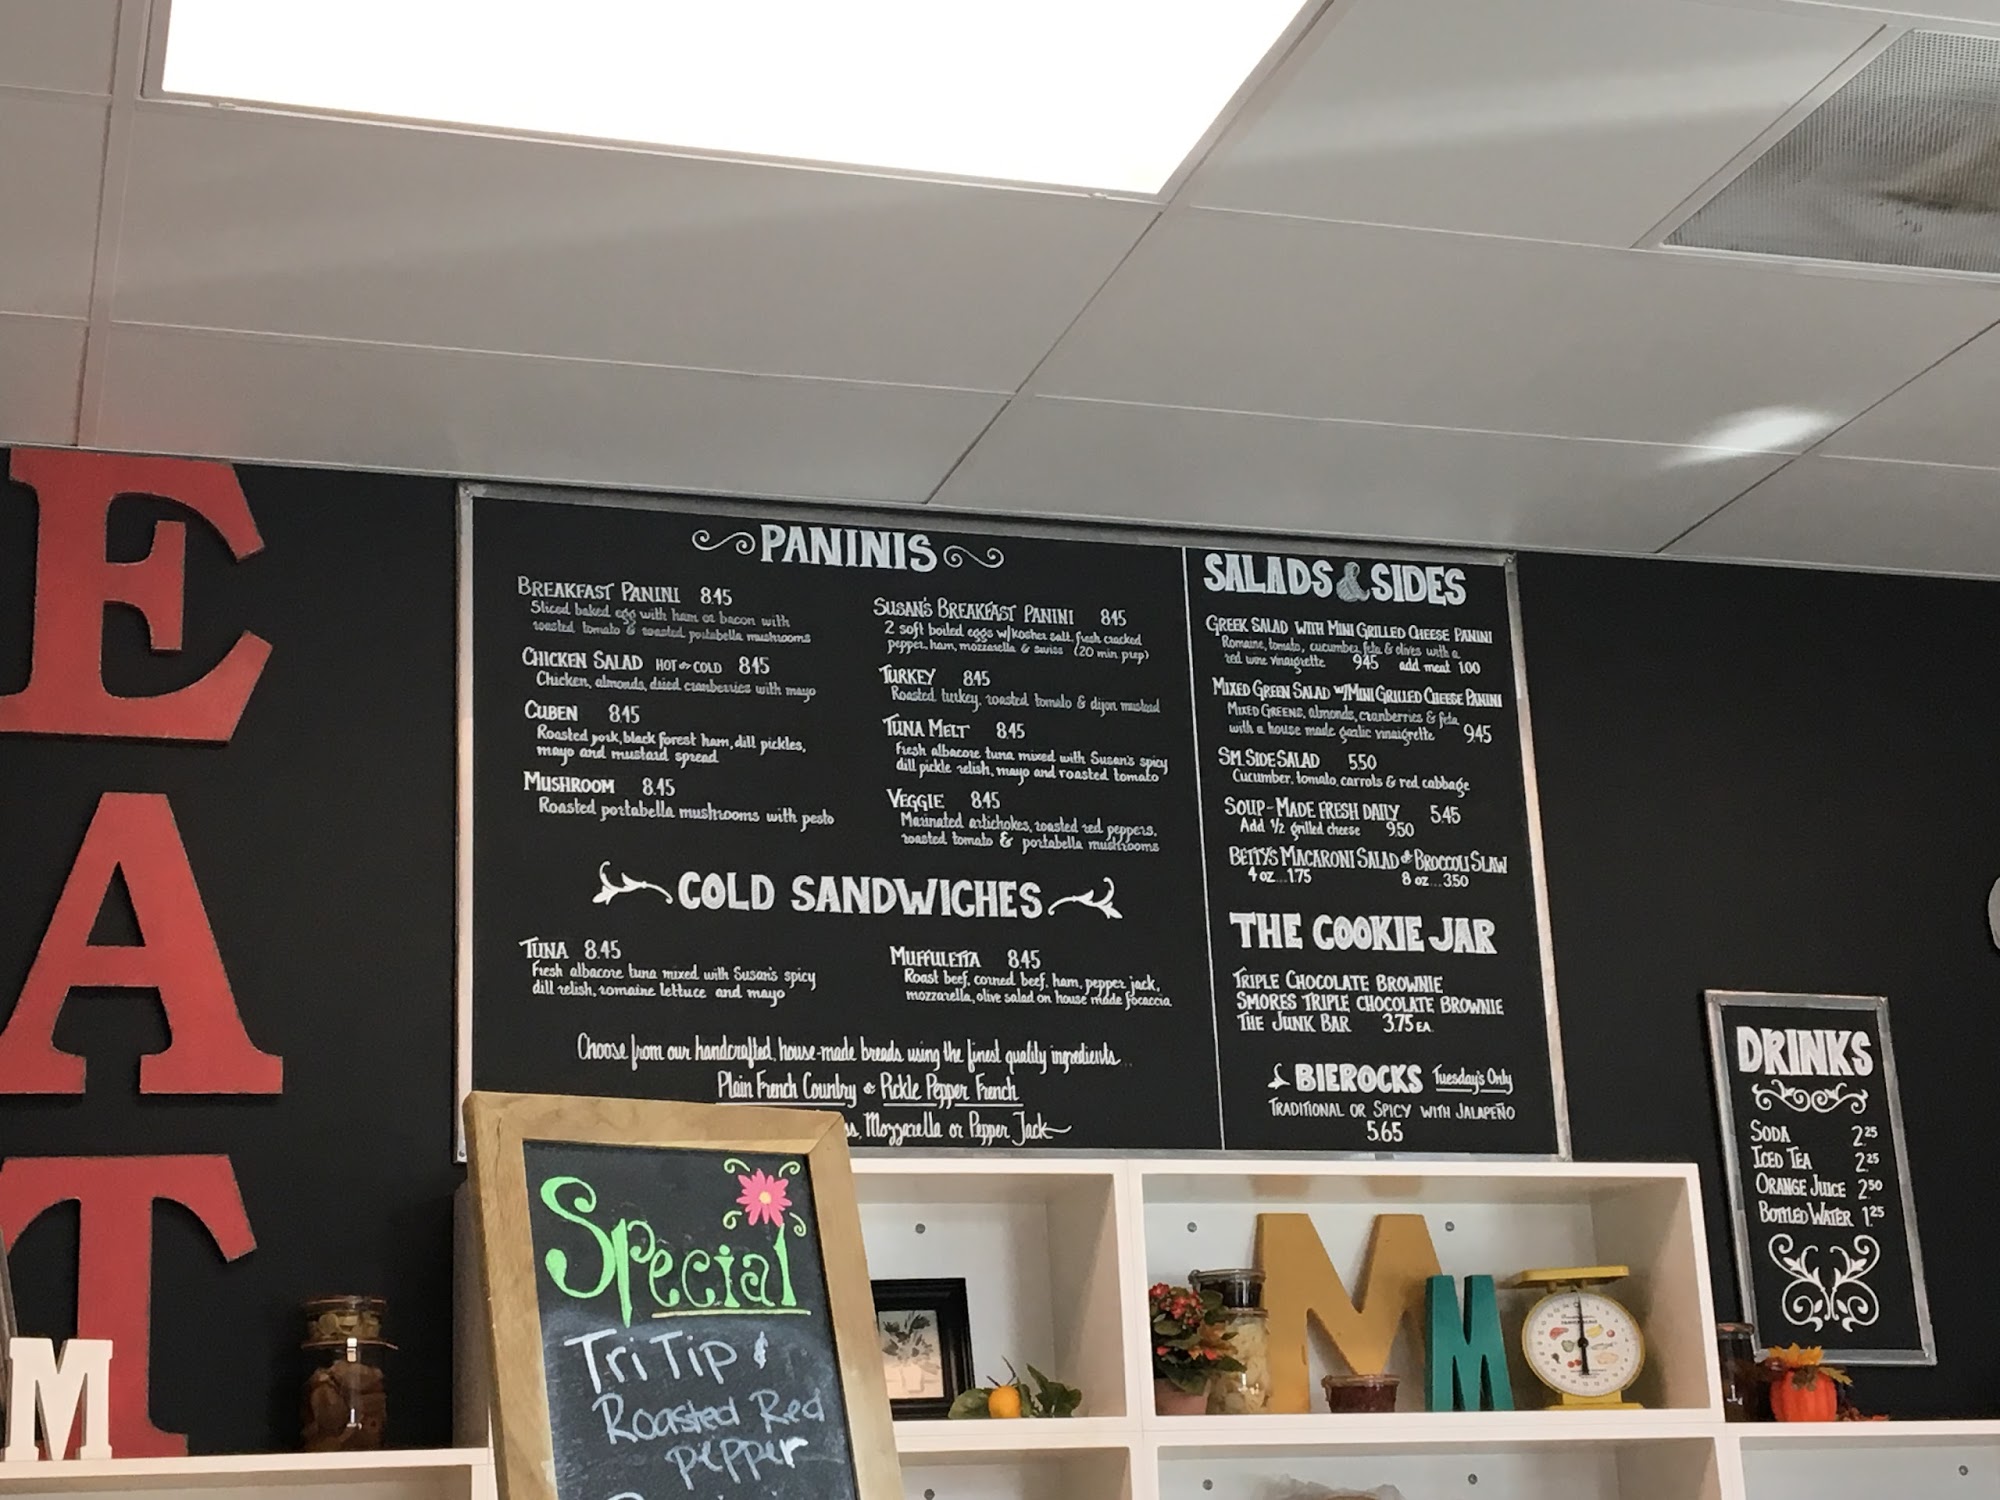 EAT
PANINIS
BREAKFAST PANINI 8.45
Sliced baked egg with ham or bacon with
roasted tomato & roasted portabella mushrooms
CHICKEN SALAD HOT or COLD 8.45
Chicken, almonds, dried cranberries with mayo
CUBEN 8.45
Roasted pork, black forest ham, dill pickles,
mayo and mustard spread
MUSHROOM 8.45
Roasted portabella mushrooms with pesto
SUSAN'S BREAKFAST PANINI 8.45
2 soft boiled eggs w/kosher salt, fresh cracked
pepper, ham, mozzarella & swiss (20 min prep)
TURKEY 8.45
Roasted turkey, roasted tomato & dijon mustard
TUNA MELT 8.45
Fresh albacore tuna mixed with Susan's spicy
dill pickle relish, mayo and roasted tomato
VEGGIE 8.45
Marinated artichokes, roasted red peppers,
roasted tomato & portabella mushrooms
COLD SANDWICHES
TUNA 8.45
Fresh albacore tuna mixed with Susan's spicy
dill relish, romaine lettuce and mayo
MUFFULETTA 8.45
Roast beef, corned beef, ham, pepper jack,
mozzarella, olive salad on house made focaccia
Choose from our handcrafted, house-made breads using the finest quality ingredients...
Plain French Country or Pickle Pepper French
Mozzarella or Pepper Jack
SALADS & SIDES
GREEK SALAD WITH MINI GRILLED CHEESE PANINI
Romaine, tomato, cucumber, feta & olives with a
red wine vinaigrette 9.45 add meat 1.00
MIXED GREEN SALAD W/MINI GRILLED CHEESE PANINI
MIXED GREENS, almonds, cranberries & feta
with a house made garlic vinaigrette 9.45
SM. SIDE SALAD 5.50
Cucumber, tomato, carrots & red cabbage
SOUP-MADE FRESH DAILY 5.45
Add 1/2 grilled cheese 9.50
BETTY'S MACARONI SALAD or BROCCOLI SLAW
4 oz...1.75 8 oz...3.50
THE COOKIE JAR
TRIPLE CHOCOLATE BROWNIE
SMORES TRIPLE CHOCOLATE BROWNIE
THE JUNK BAR 3.75 EA.
BIEROCKS Tuesday's Only
TRADITIONAL OR SPICY WITH JALAPEÑO
5.65
DRINKS
SODA 2.25
ICED TEA 2.25
ORANGE JUICE 2.50
BOTTLED WATER 1.25
Special
Tri Tip &
Roasted Red
pepper
M
M
M